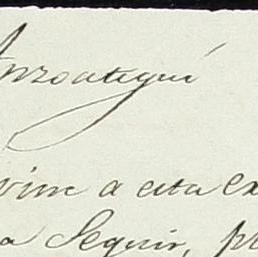 Anzoategui
vine a esta ex
a Seguir, pr